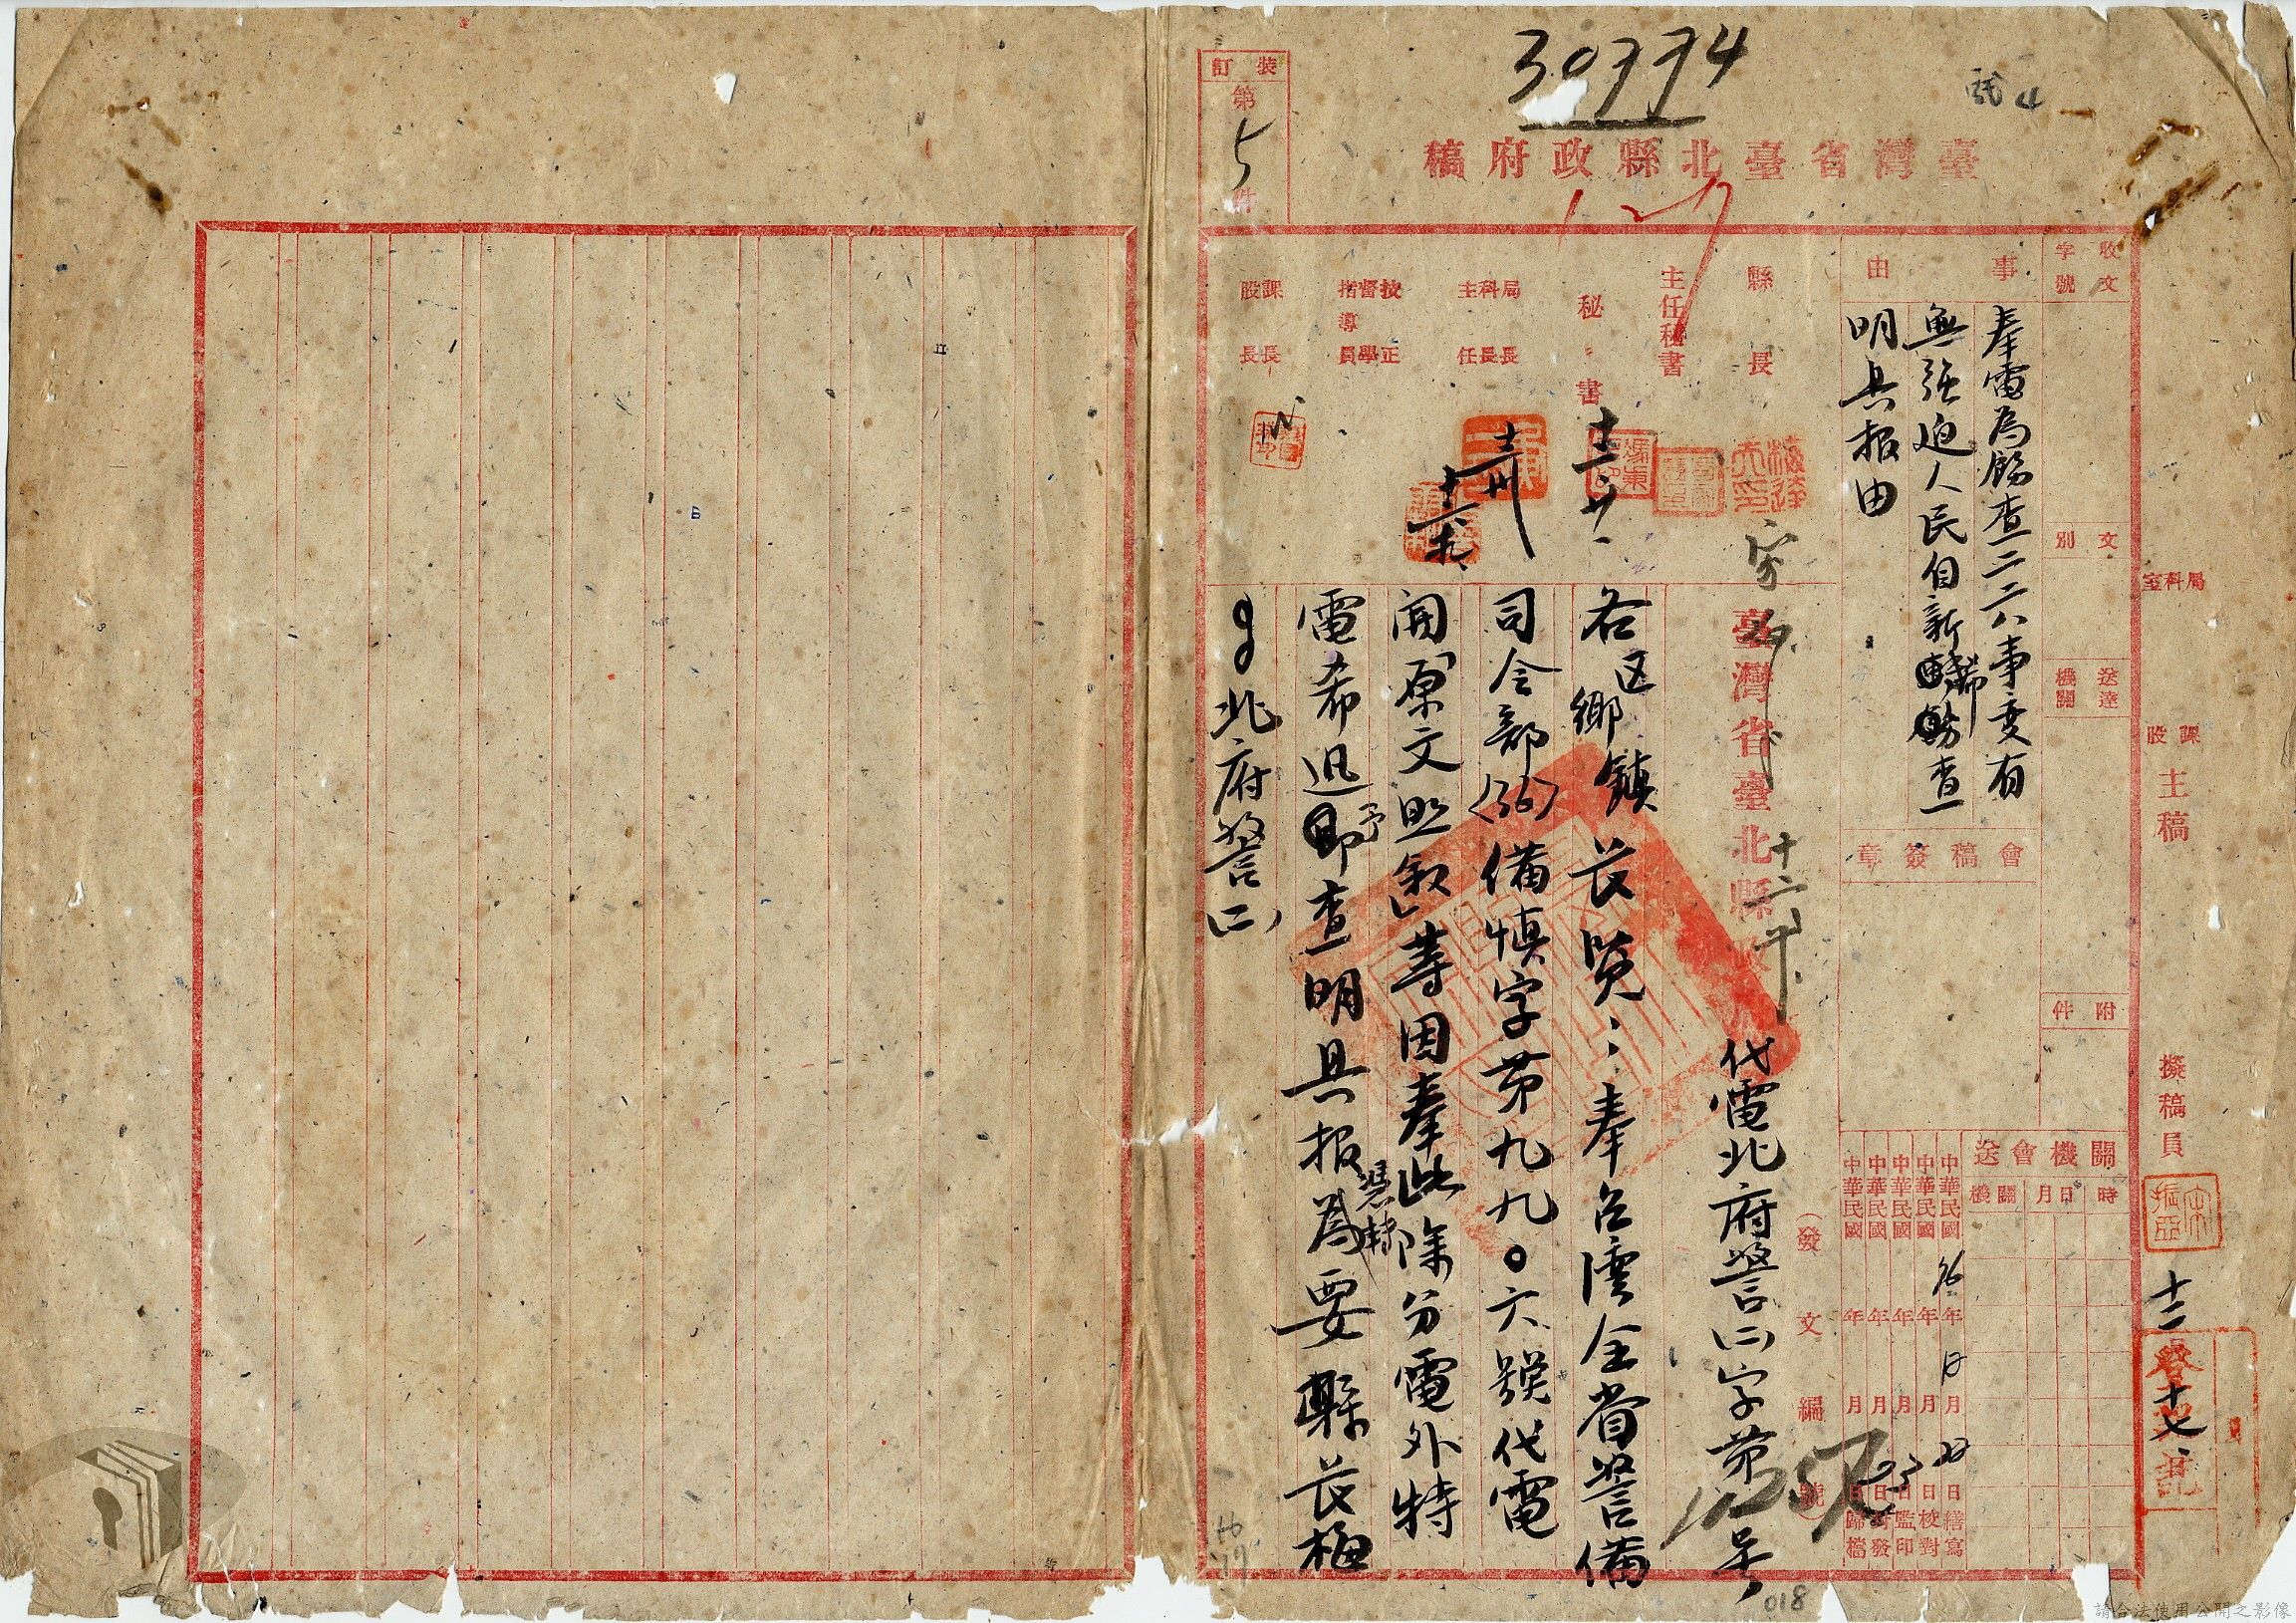 30994
臺灣省臺北縣政府稿
裝訂
第5件
收文
字號
文別
送達機關
附件
事由
奉電為飭查二二八事變有
無强迫人民自新希查
明具報由
會稿簽章
縣長
主任秘書
秘書
局科主
長長任
按督指導
正學員
課股
長長
局科室
課股
主稿
擬稿員
十二
十七
關機會送
時
月日
機關
中華民國36年12月日繕寫
中華民國年月日校對
中華民國年月日監印
中華民國年月日封發
中華民國年月日歸檔
發文編號
臺灣省臺北縣政府
代電北府警(二)字第號
各区鄉鎮長览:奉台湾全省警備
司令部(36)備慎字第九九〇六號代電
開「原文照敘」等因奉此除分電外特
電希迅予查明具報憑轉為要縣長梅
北府警(二)
018
請合法使用公開之影像